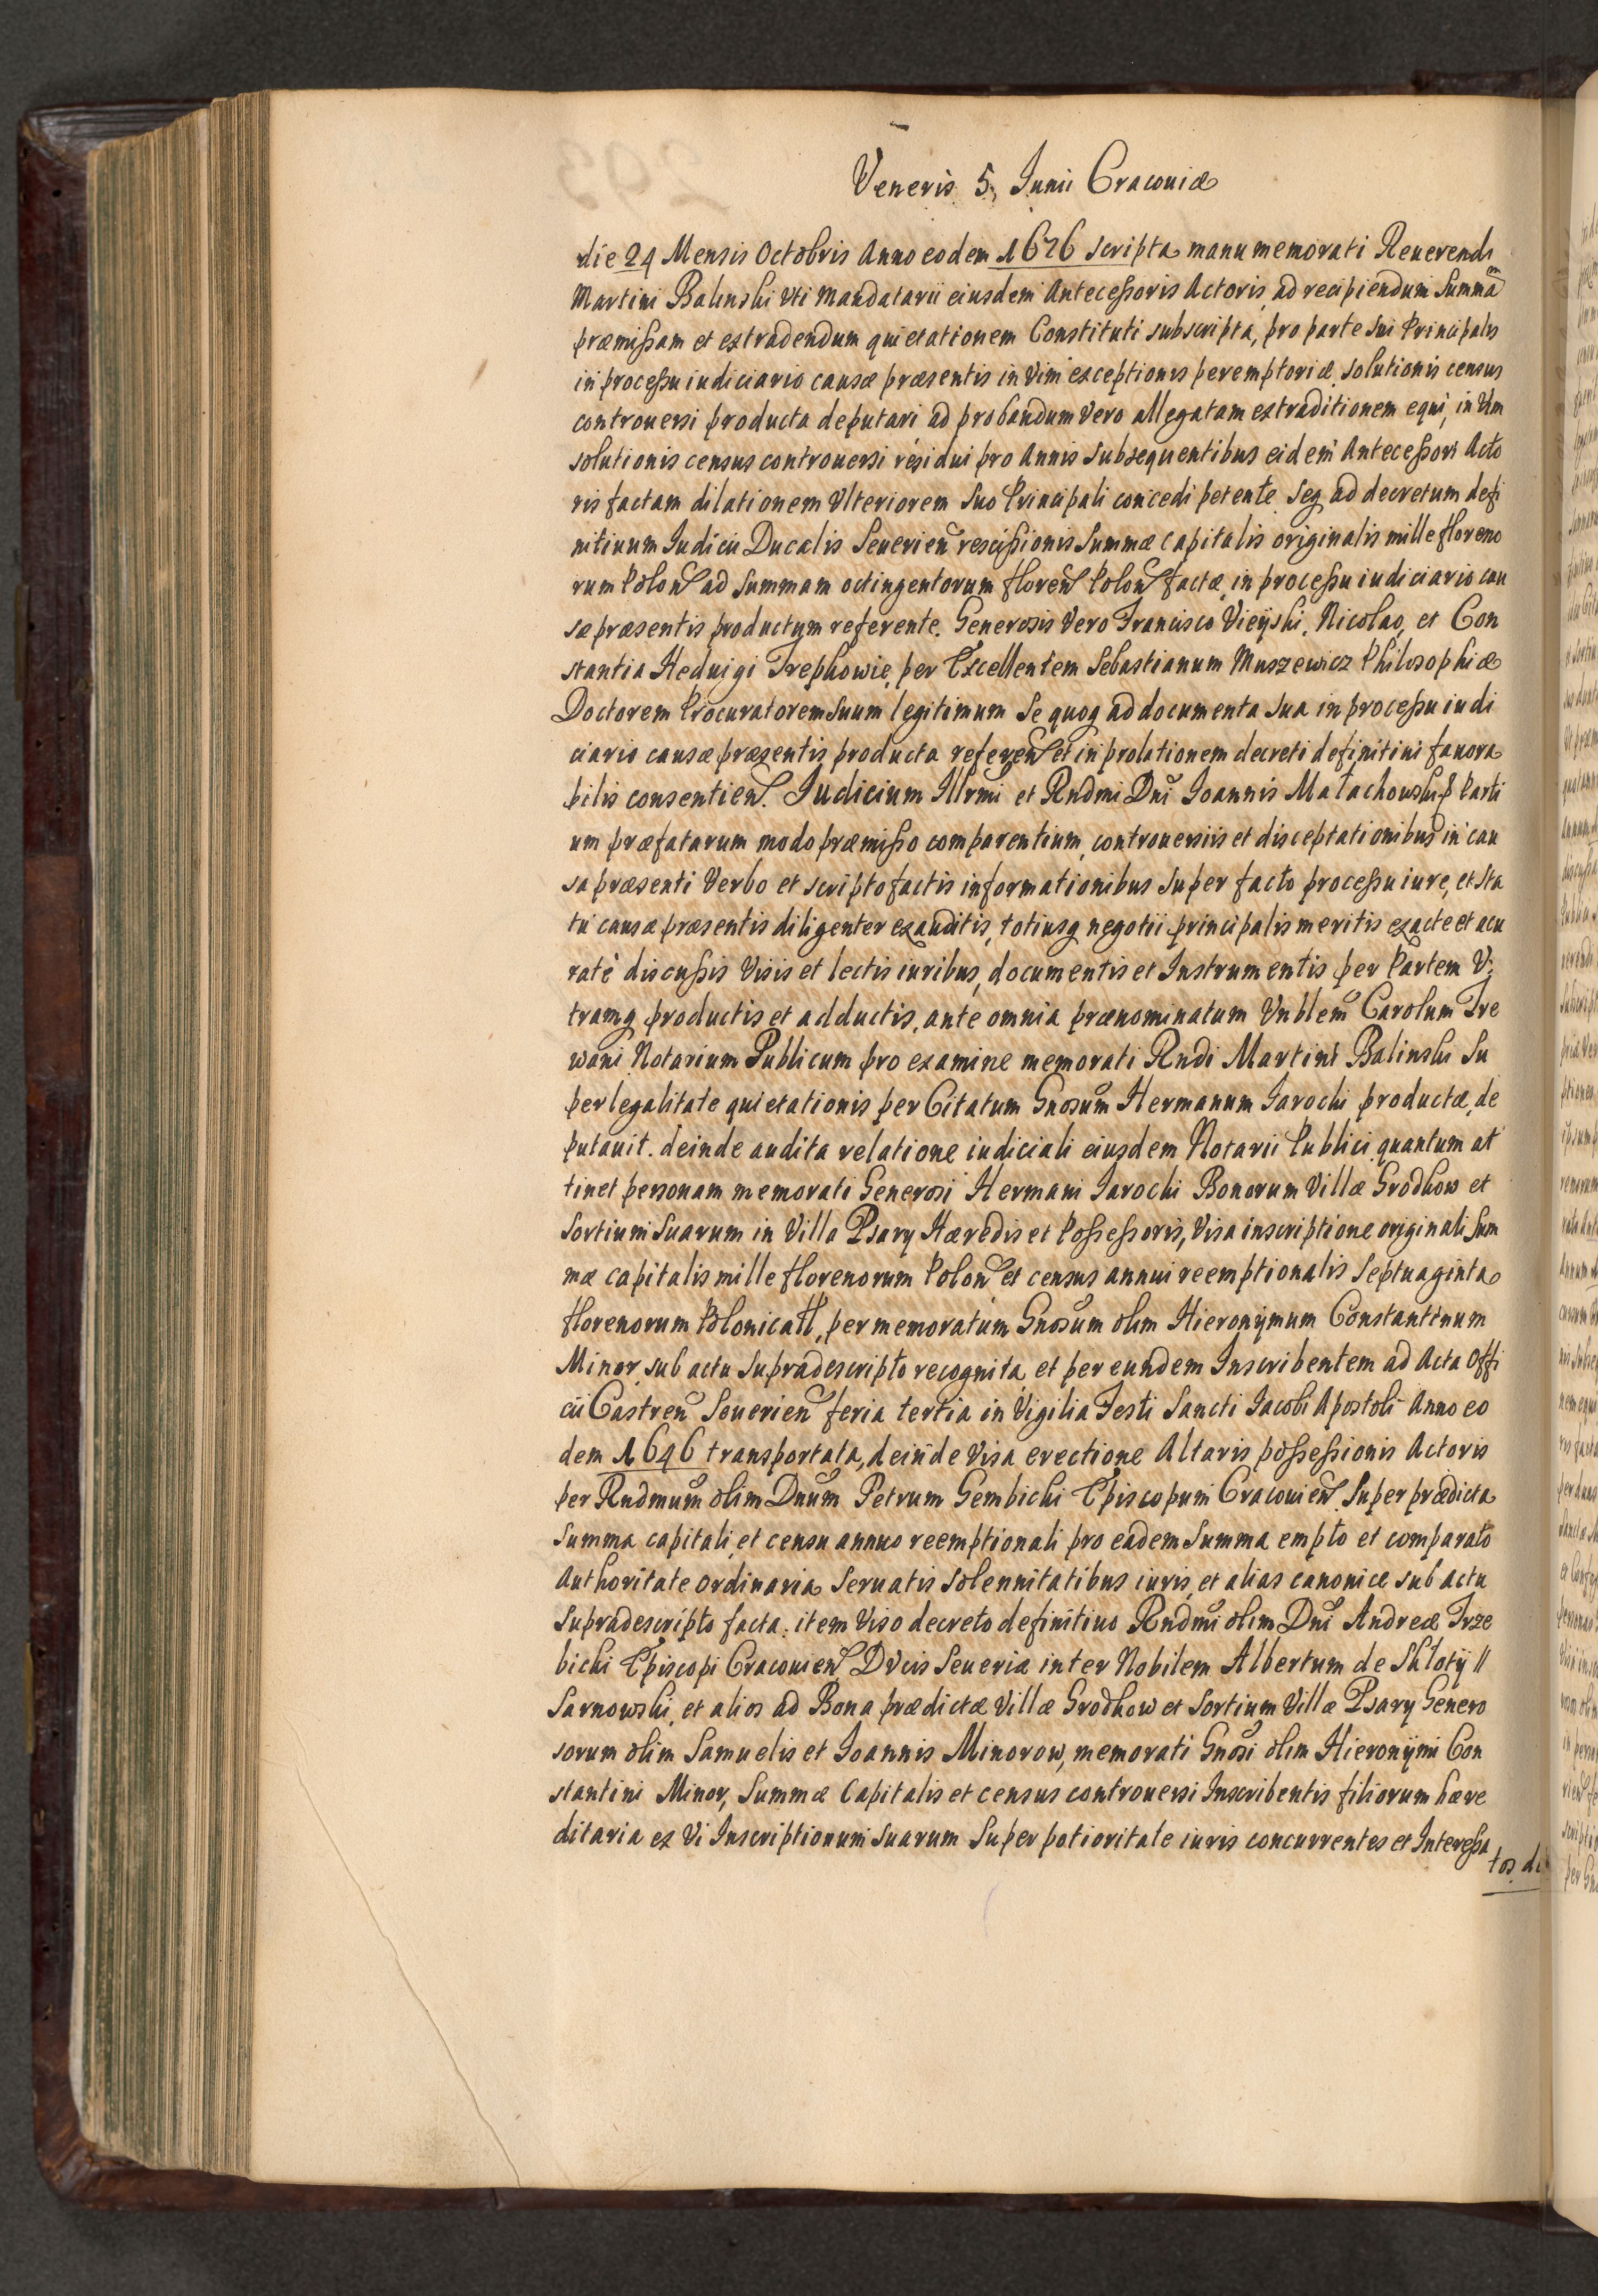 Veneris 5. Junii Cracouiæ
die 24 Mensis Octobris Anno eodem 1676 scripta manu memorati Reuerendi
Martini Balinski Vti Mandatarii eiusdem Antecessoris Actoris, ad recipiendum Summā
præmissam et extradendum quietationem Constituti subscripta, pro parte sui Principalis
in processu iudiciario causæ præsentis in Vim exceptionis peremptoriæ, solutionis census
controuersi producta deputari ad probandum vero allegatam extraditionem equi, in Vim
solutionis census controuersi residui pro Annis subsequentibus eidem Antecessori Acto
ris factam dilationem Vlteriorem Suo Principali concedi petente Seq ad decretum defi
nitiuum Iudicii Ducalis Seuerien̄ rescissionis Summæ capitalis originalis mille floreno
rum Polon̄ ad Summam octingentorum floren̄ Polon̄ factæ, in processu iudiciario cau
sæ præsentis productum referente. Generosis Vero Francisco Vieyski, Nicolao, et Con
stantia Heduigi Trepkowie, per Excellentem Sebastianum Muszewicz Philosophiæ
Doctorem Procuratorem Suum legitimum Se quoq ad documenta sua in processu iudi
ciario causæ præsentis producta referen̄ et in prolationem decreti definitiui fauora
bilis consentien̄. Iudicium Illrmi et Rndmi Dni Ioannis Małachowski Parti
um præfatarum modo præmisso comparentium, controuersiis et disceptationibus in cau
sa præsenti Verbo et scripto factis informationibus super facto processu iure, et sta
tu causæ præsentis diligenter exauditis, totiusq negotii principalis meritis exacte et acu
raté discussis Visis et lectis iuribus, documentis et Instrumentis per Partem V,
tramq productis et adductis, ante omnia prænominatum Vnblem Carolum Tre
wani Notarium Publicum pro examine memorati Rndi Martini Balinski Su
per legalitate quietationis per Citatum Gnosum Hermanum Jarocki productæ, de
putauit. deinde audita relatione iudiciali eiusdem Notarii Publici quantum at
tinet personam memorati Generosi Hermani Jarocki Bonorum Villæ Grodkow et
Sortium Suarum in Villa Psary Hæredis et Possessoris, Visa inscriptione originali Sum
mæ capitalis mille florenorum Polon̄ et census annui reemptionalis Septuaginta
florenorum Polonical, per memoratum Gnosum olim Hieronymum Constantinum
Minor sub actu Supradescripto recognita et per eundem Inscribentem ad Acta Offi
cii Castren̄ Seuerien̄ feria tertia in Vigilia Festi Sancti Iacobi Apostoli Anno eo
dem 1646 transportata, deinde Visa erectione Altaris possessionis Actoris
per Rndmum olim Dnum Petrum Gembicki Episcopum Cracouien̄. Super prædicta
Summa capitali, et censu annuo reemptionali pro eadem Summa empto et comparato
Authoritate Ordinaria Seruatis Solennitatibus iuris et alias canonice sub actu
Supradescripto facta. item Viso decreto definitiuo Rndmi olim Dni Andreæ Trze
bicki Episcopi Cracouien̄ Dvcis Seueriæ inter Nobilem Albertum de Skłoty //
Sarnowski, et alios ad Bona prædictæ Villæ Grodkow et Sortium Villæ Psary Genero
sorum olim Samuelis et Ioannis Minorow, memorati Gnosi olim Hieronymi Con
stantini Minor, Summæ Capitalis et census controuersi Inscribentis filiorum hære
ditaria ex Vi Inscriptionum Suarum Super potioritate iuris concurrentes et Interessa
tos